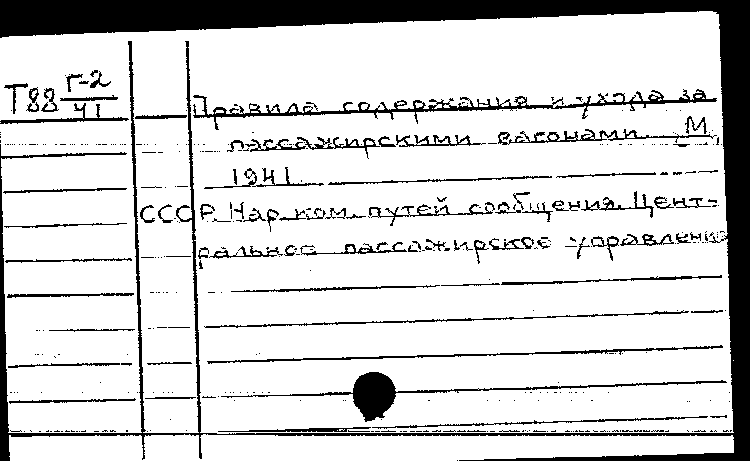 Т88 Г-2
41
Правила содержания и ухода за
пассажирскими вагонами. М.,
1941.
СССР. Нар. ком. путей сообщения. Цент-
ральное пассажирское управление